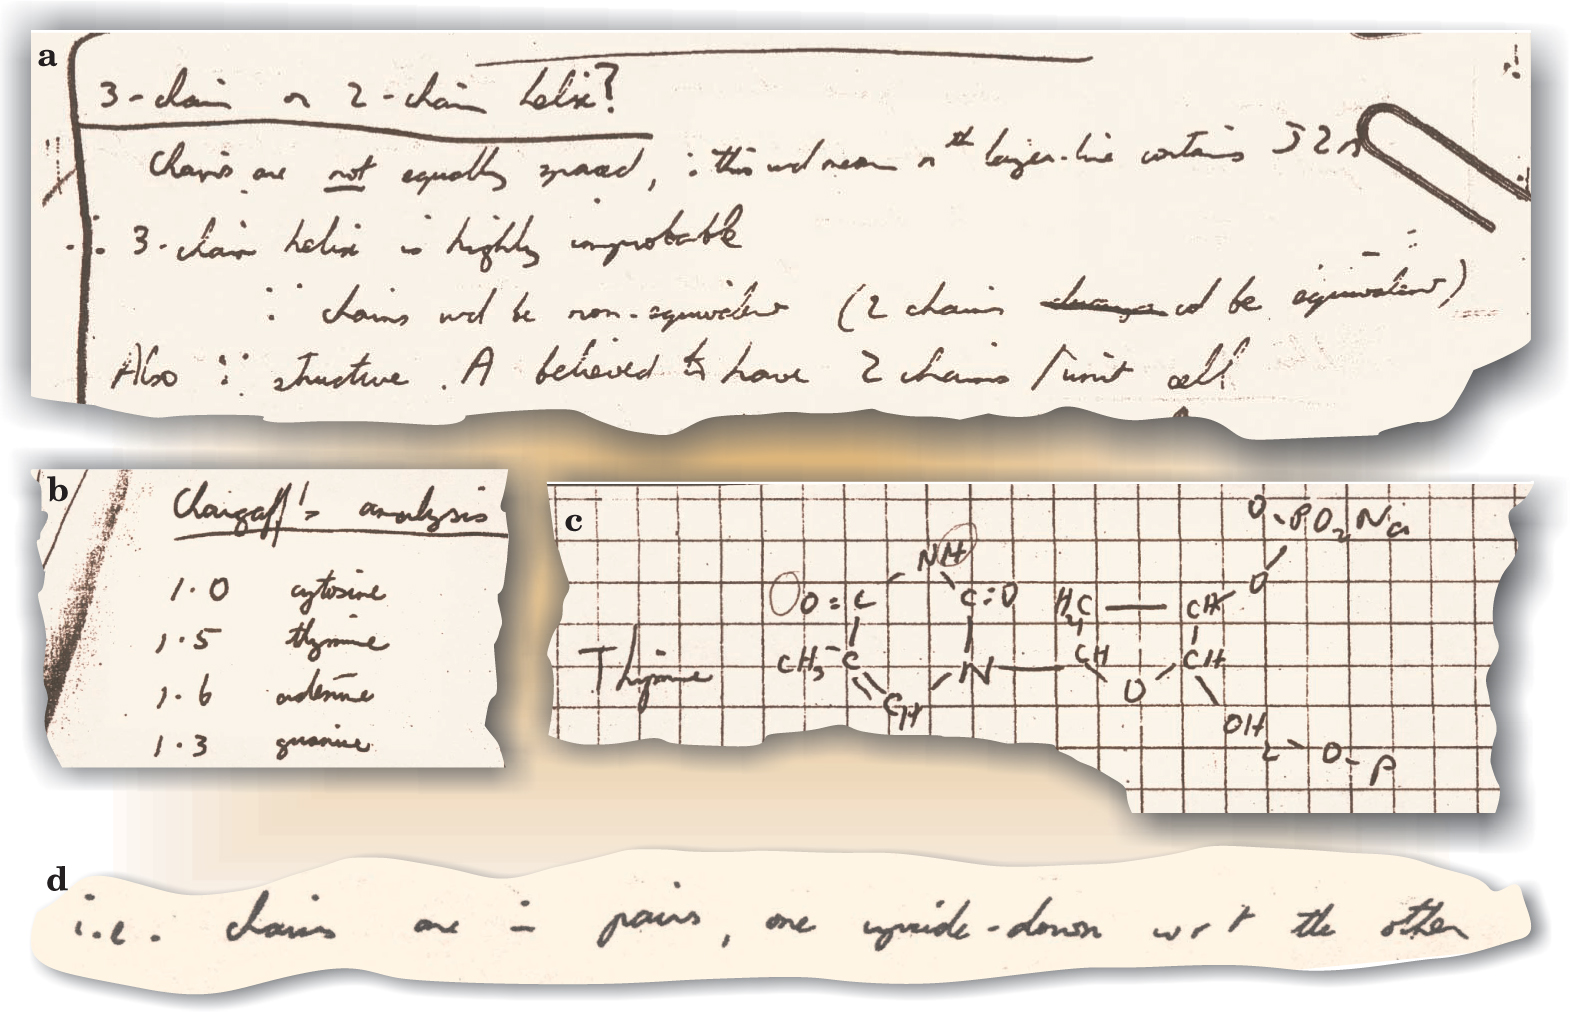 a
3-chain or 2-chain helix?
Chains are not equally spaced, ∵ this wd mean nth layer-line contains J2n
∴ 3-chain helix is highly improbable
∵ chains wd be non-equivalent (2 chains cd be equivalent)
Also ∵ structure A believed to have 2 chains / unit cell
b
Chargaff's analysis
1.0 cytosine
1.5 thymine
1.6 adenine
1.3 guanine
c
O-PO2Na
NH
O
O=C C=O H2C CH
Thymine CH3-C N CH CH
CH O
OH
2-O-P
d
i.e. chains are in pairs, one upside-down wrt the other